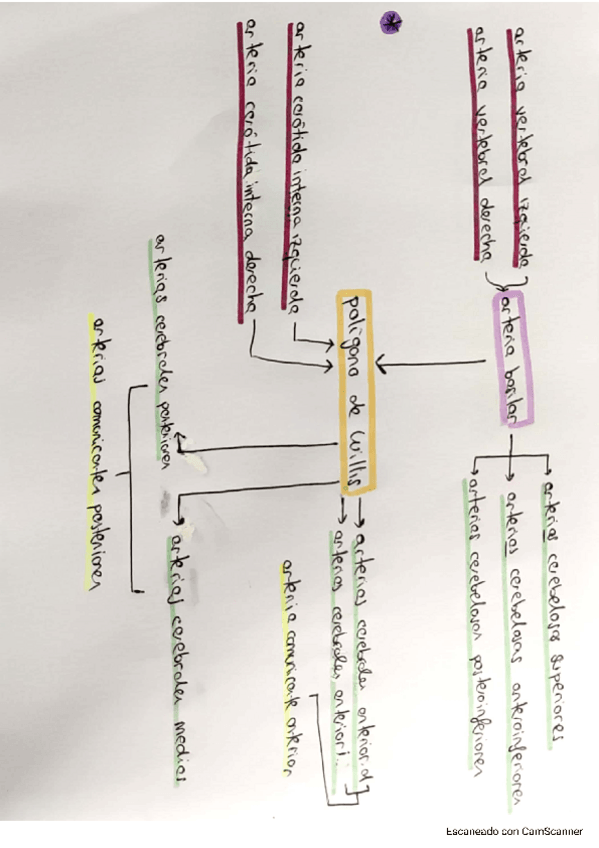 arteria vertebral izquierda
arteria vertebral derecha
arteria basilar
arterias cerebelosas superiores
arterias cerebelosas anteroinferiores
arterias cerebelosas posteroinferiores
arteria carótida interna izquierda
arteria carótida interna derecha
polígono de Willis
arterias cerebrales anterior d
arterias cerebrales anterior i..
arteria comunicante anterior
arterias cerebrales posteriores
arterias cerebrales medias
arterias comunicantes posteriores
Escaneado con CamScanner